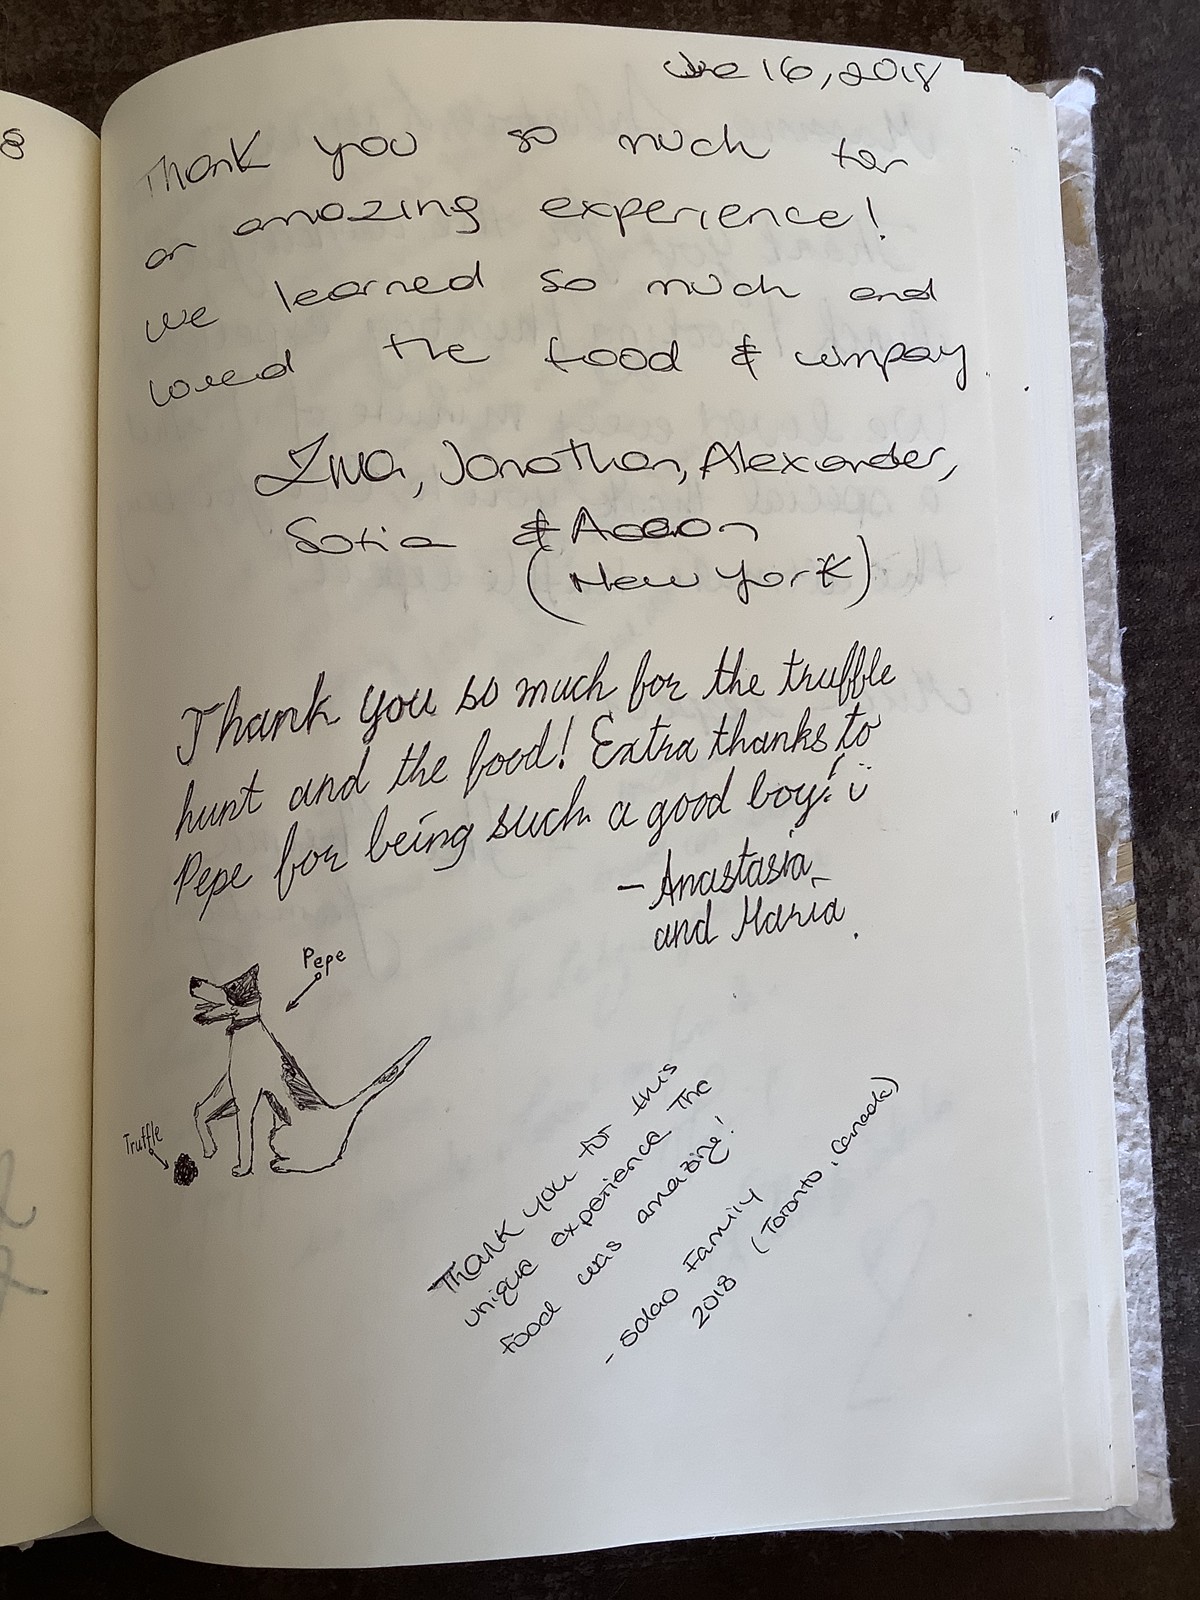 June 16, 2018
Thank you so much for
an amazing experience!
we learned so much and
loved the food & company
Jonathan, Alexander,
Sofia & Aaron
(New York)
Thank you so much for the truffle
hunt and the food! Extra thanks to
Pepe for being such a good boy! :)
- Anastasia
and Maria.
Pepe
Truffle
Thank you for this
unique experience The
food was amazing!
- Family
2018 (Toronto, Canada)
8